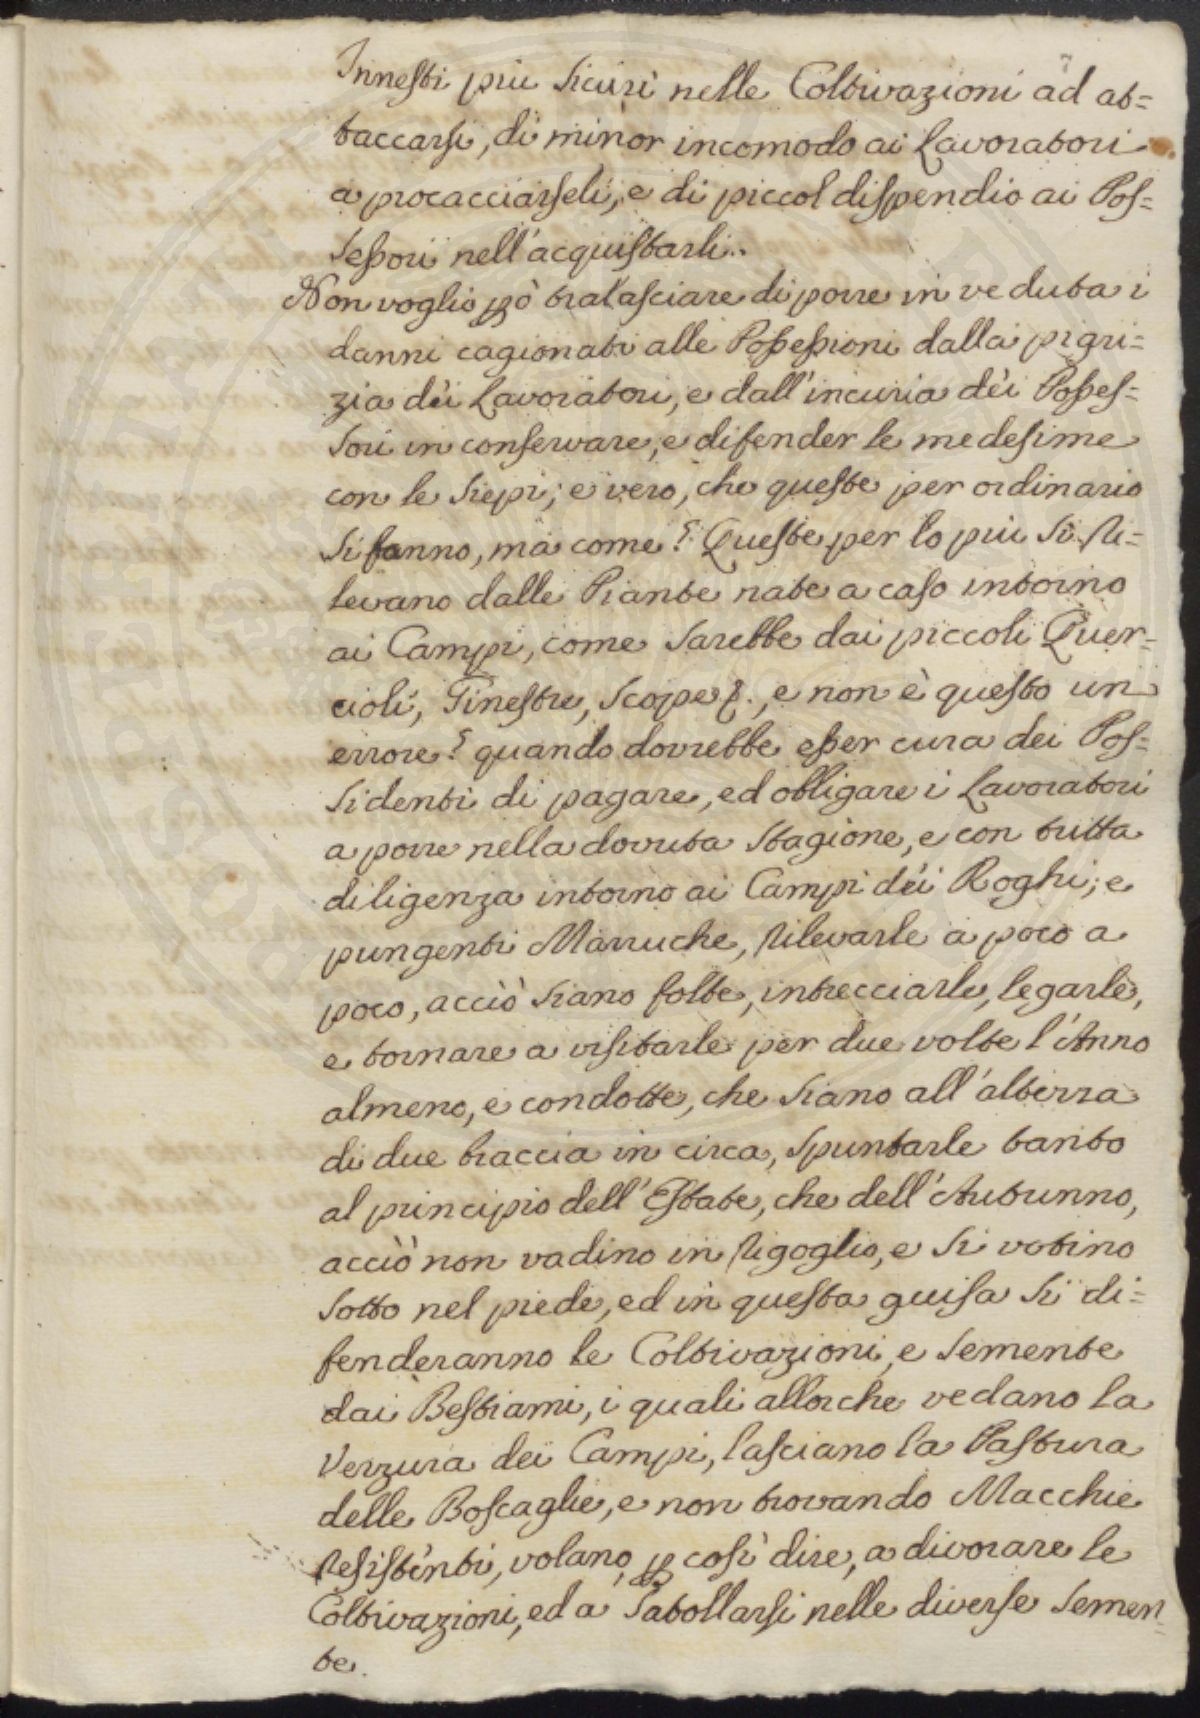 7
Innesti piu sicuri nelle Coltivazioni ad at=
taccarsi, di minor incomodo ai Lavoratori
a procacciarseli, e di piccol dispendio ai Pos=
sessori nell'acquistarli..
Non voglio pò tralasciare di porre in veduta i
danni cagionati alle Possessioni dalla pigri=
zia dei Lavoratori, e dall'incuria dèi Posses=
sori in conservare, e difender le medesime
con le siepi; e vero, che queste per ordinario
si fanno, ma come? Queste per lo piu si ri=
levano dalle Piante nate a caso intorno
ai Campi, come sarebbe dai piccoli Quer=
cioli, Ginestre, Scope &., e non è questo un
errore? quando dovrebbe esser cura dei Pos=
sidenti di pagare, ed obligare i Lavoratori
a porre nella dovuta stagione, e con tutta
diligenza intorno ai Campi dèi Roghi, e
pungenti Marruche, rilevarle a poco a
poco, acciò siano folte, intrecciarle, legarle,
e tornare a visitarle per due volte l'Anno
almeno, e condotte, che siano all'altezza
di due braccia in circa, spuntarle tanto
al principio dell'Estate, che dell'Autunno,
acciò non vadino in rigoglio, e si votino
sotto nel piede, ed in questa guisa si di=
fenderanno le Coltivazioni, e semente
dai Bestiami, i quali allorche vedano la
Verzura dei Campi, lasciano la Pastura
delle Boscaglie, e non trovando Macchie
resistenti, volano, p così dire, a divorare le
Coltivazioni, ed a satollarsi nelle diverse semen=
te.